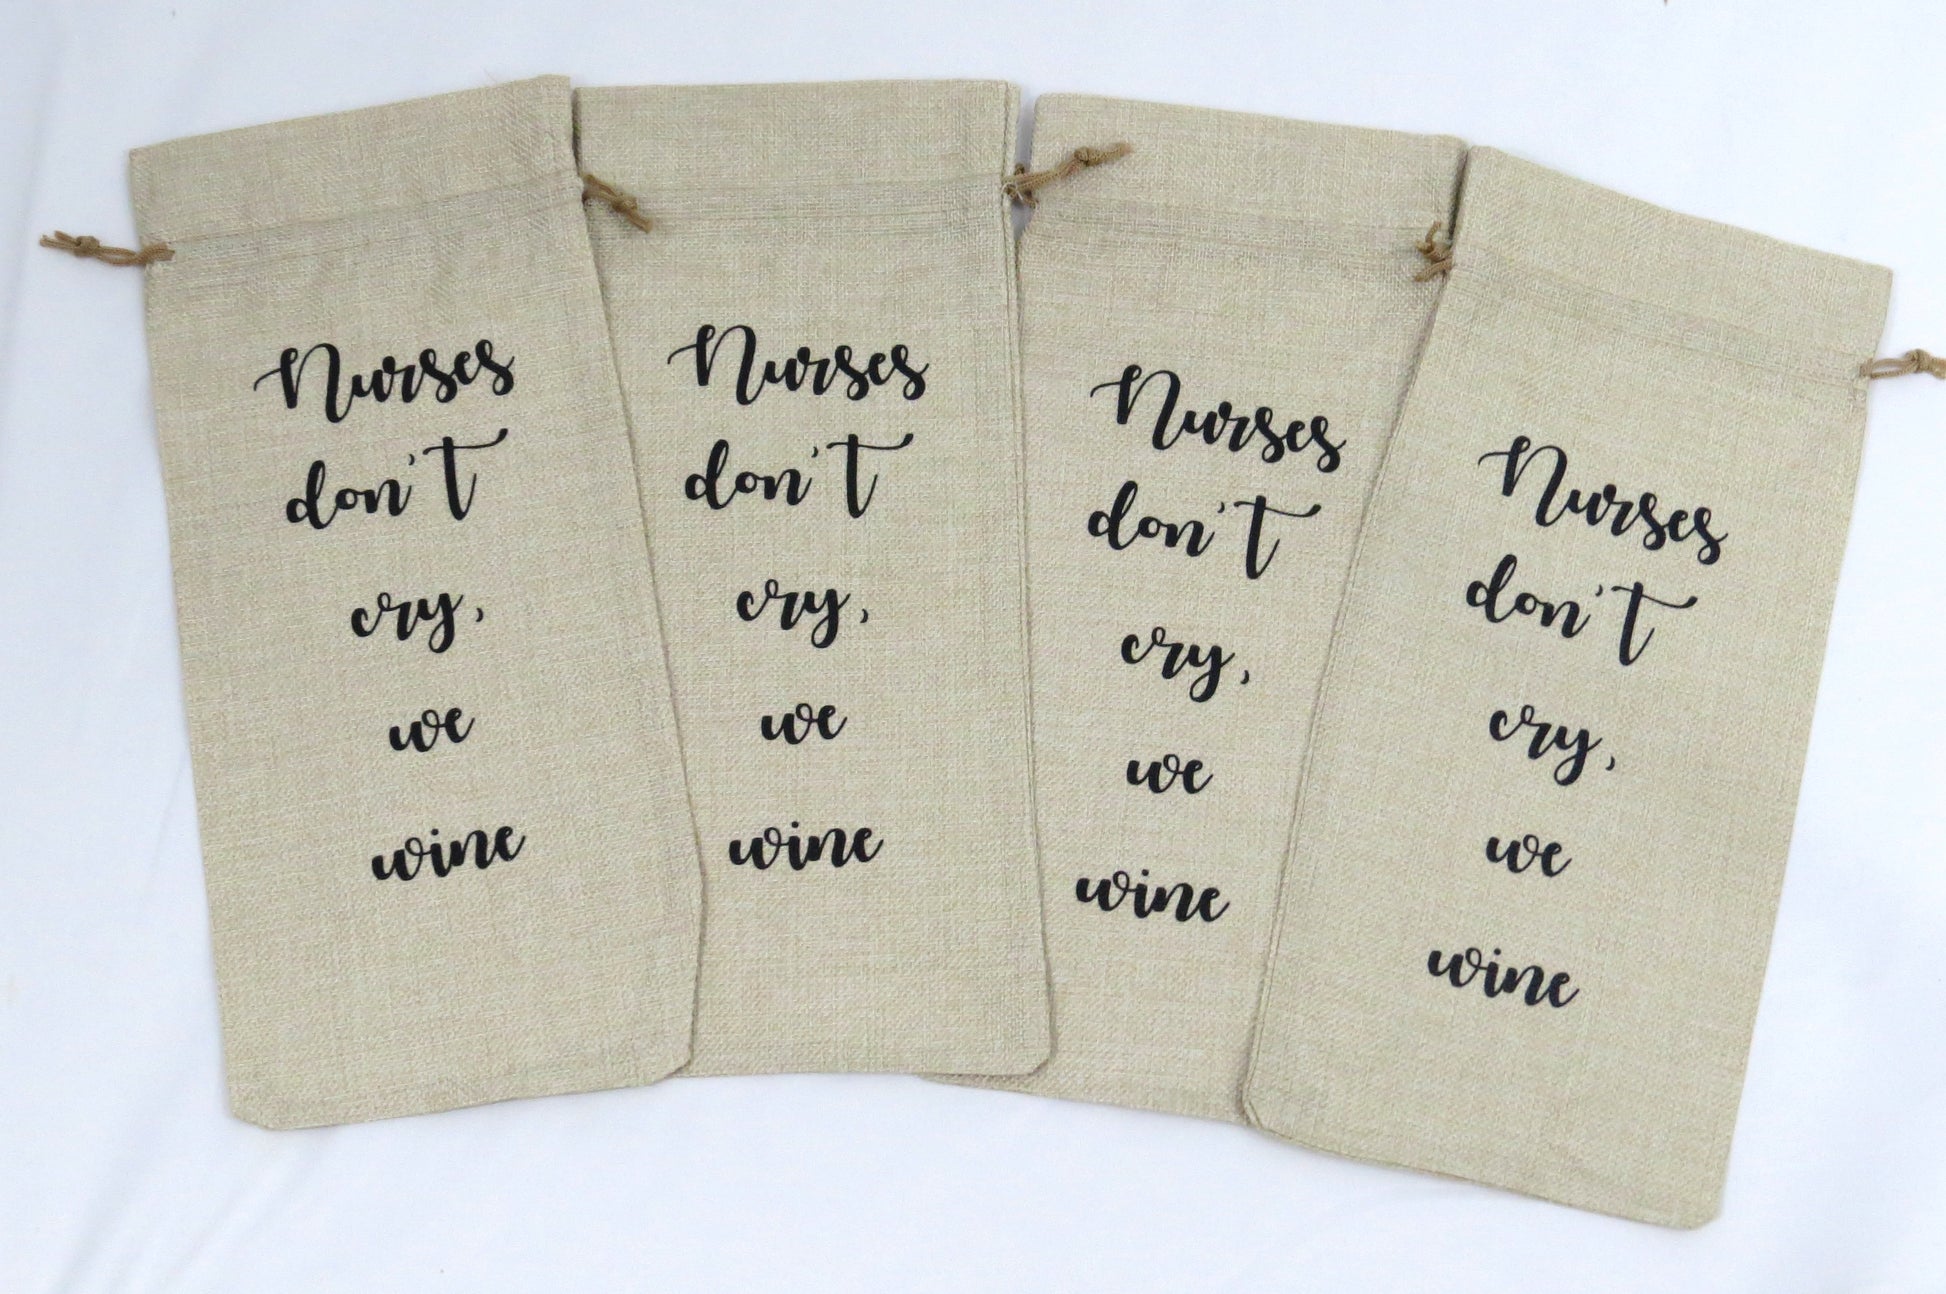 Nurses
don't
cry,
we
wine
Nurses
don't
cry,
we
wine
Nurses
don't
cry,
we
wine
Nurses
don't
cry,
we
wine